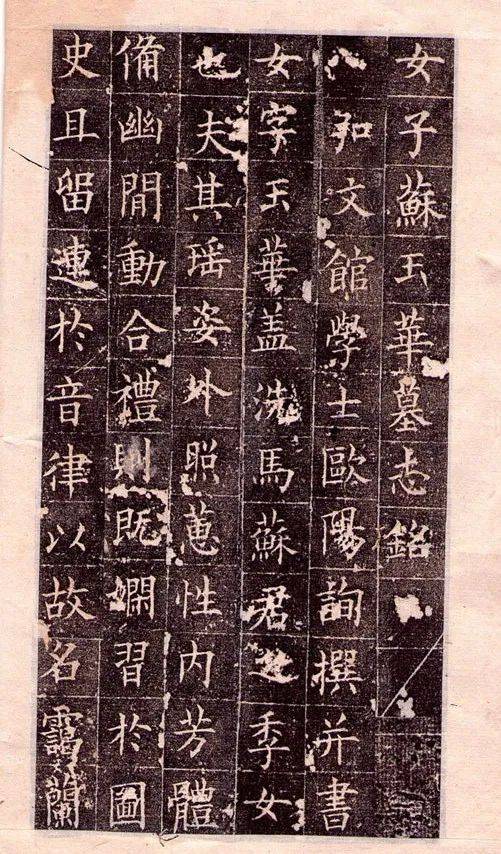 女子蘇玉華墓志銘
弘文館學士歐陽詢撰并書
女字玉華盖洗馬蘇君之季女
也夫其瑶姿外照蕙性内芳體
備幽閒動合禮則既嫻習於圖
史且留連於音律以故名靄蘭